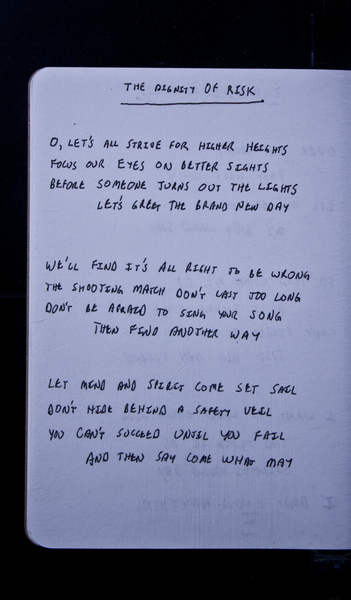 THE DIGNITY OF RISK
O, LET'S ALL STRIVE FOR HIGHER HEIGHTS
FOCUS OUR EYES ON BETTER SIGHTS
BEFORE SOMEONE TURNS OUT THE LIGHTS
LET'S GREET THE BRAND NEW DAY
WE'LL FIND IT'S ALL RIGHT TO BE WRONG
THE SHOOTING MATCH DON'T LAST TOO LONG
DON'T BE AFRAID TO SING YOUR SONG
THEN FIND ANOTHER WAY
LET MIND AND SPIRIT COME SET SAIL
DON'T HIDE BEHIND A SAFETY VEIL
YOU CAN'T SUCCEED UNTIL YOU FAIL
AND THEN SAY COME WHAT MAY